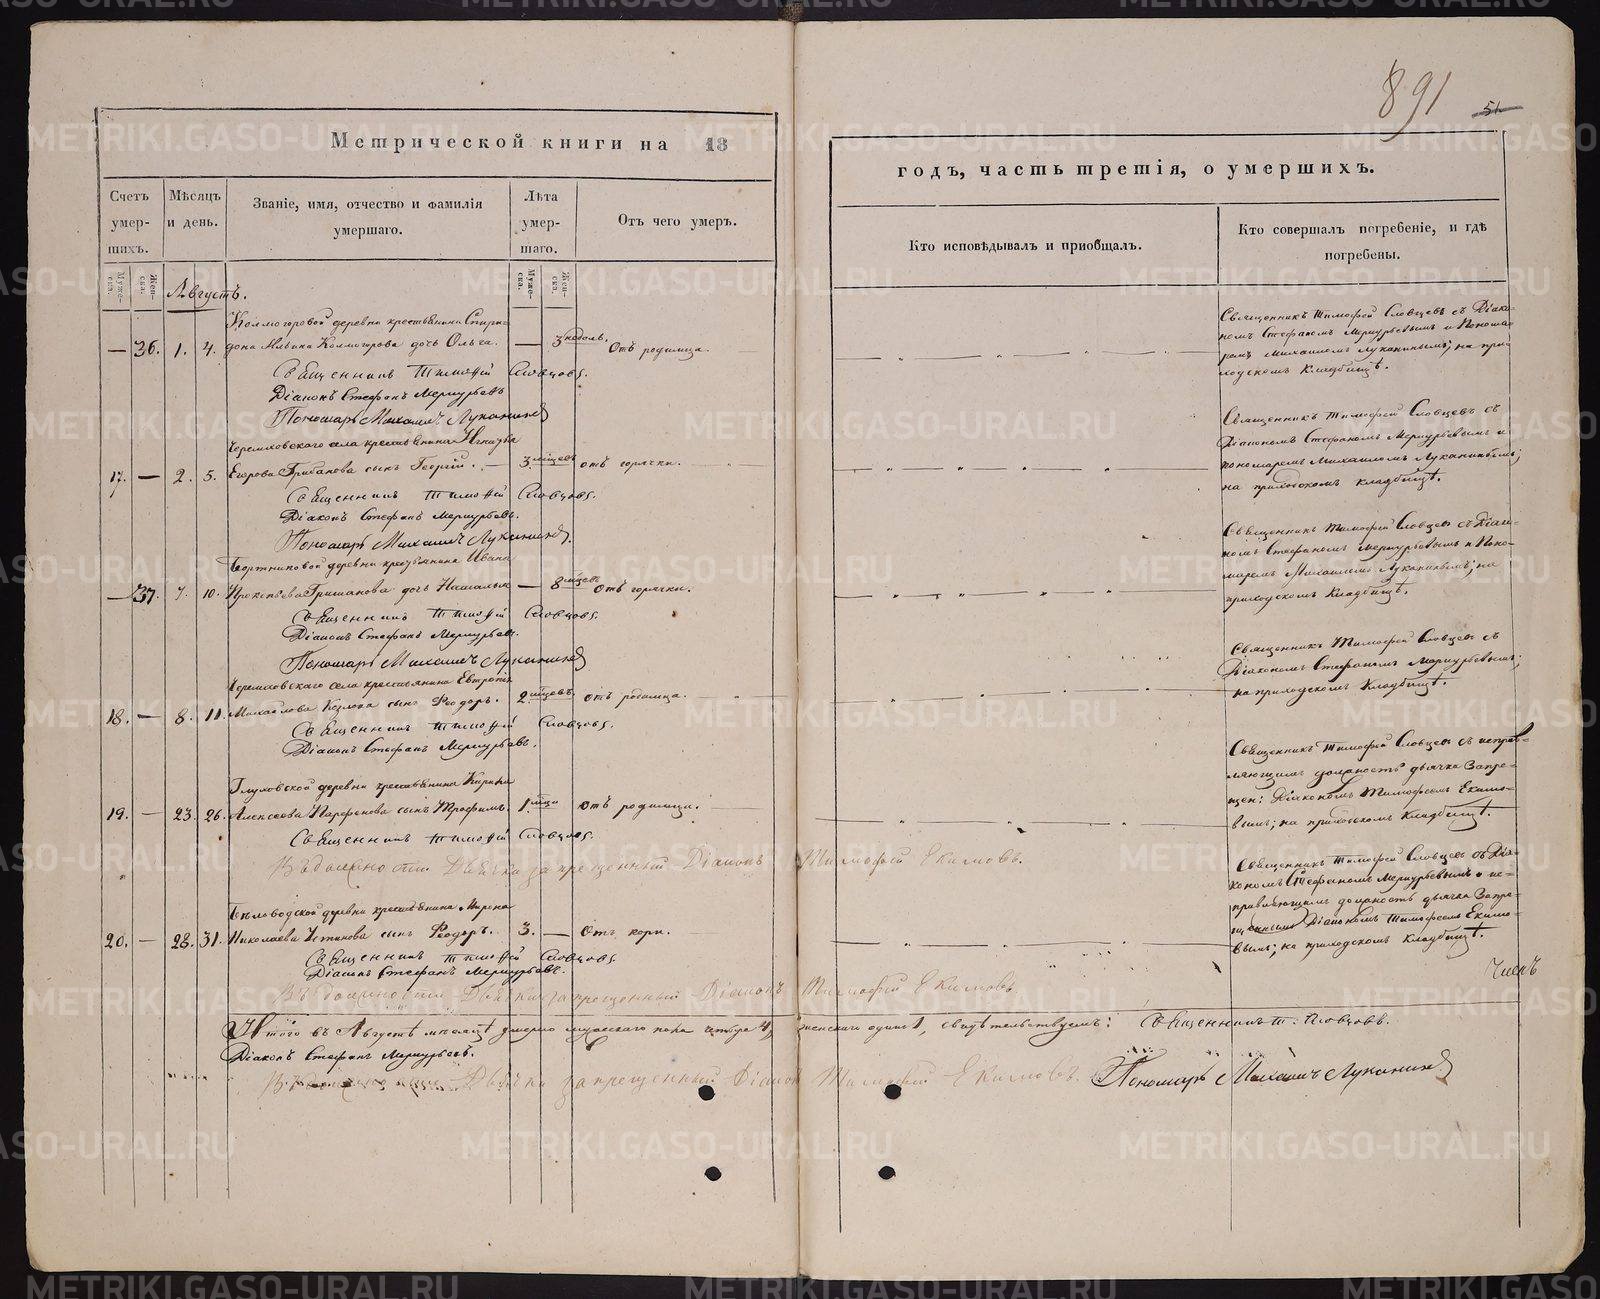 891
51
Метрической книги на 18
годъ, часть третія, о умершихъ.
Счетъ умер-шихъ.
Мѣсяцъ и день.
Званіе, имя, отчество и фамилія умершаго.
Лѣта умер-шаго.
Отъ чего умеръ.
Кто исповѣдывалъ и пріобщалъ.
Кто совершалъ погребеніе, и гдѣ погребены.
Муже-ска.
Жен-ска.
Муже-ска.
Жен-ска.
Августъ.
Колмогоровой деревни крестьянина Спири-
— 36. 1. 4. дона Ильина Колмогорова дочь Ольга. — 3 недѣль. Отъ родимца.
Священникъ Тимоѳей Словцовъ.
Діаконъ Стефанъ Меркурьевъ
Пономарь Михаилъ Луканинъ
Священникъ Тимофей Словцевъ съ Діако-
номъ Стефаномъ Меркурьевымъ и Понома-
ремъ Михаиломъ Луканинымъ; на при-
ходскомъ Кладбищѣ.
Черемховскаго села крестьянина Игнатья
17. — 2. 5. Егорова Грибанова сынъ Георгій. 3. мѣсцевъ отъ горячки.
Священникъ Тимоѳей Словцовъ.
Діаконъ Стефанъ Меркурьевъ.
Пономарь Михаилъ Луканинъ.
Священникъ Тимофей Словцевъ съ
Діакономъ Стефаномъ Меркурьевымъ и
пономаремъ Михаиломъ Луканинымъ;
на приходскомъ кладбищѣ.
деревни крестьянина Ивана
— 37. 7. 10. Прокопьева дочь Наталья — 8 мѣсцевъ Отъ горячки.
Священникъ Тимоѳей Словцовъ.
Діаконъ Стефанъ Меркурьевъ.
Пономарь Михаилъ Луканинъ
Священникъ Тимофей Словцевъ съ Діако-
номъ Стефаномъ Меркурьевымъ и Поно-
маремъ Михаиломъ Луканинымъ; на
приходскомъ Кладбищѣ.
Черемховскаго села крестьянина Евтропія
18. — 8. 11. Михайлова Козлова сынъ Феодоръ. 2. мѣсцевъ. отъ родимца.
Священникъ Тимоѳей Словцовъ.
Діаконъ Стефанъ Меркурьевъ.
Священникъ Тимофей Словцевъ съ
Діакономъ Стефаномъ Меркурьевымъ;
на приходскомъ Кладбищѣ.
Глуховской деревни крестьянина Кирила
19. — 23. 26. Алексеева Парфенова сынъ Трофимъ. 1. мѣсца отъ родимца.
Священникъ Тимоѳей Словцовъ.
Въ должности Дьячка запрещенный Діаконъ Тимофей Екимовъ.
Священникъ Тимофей Словцовъ съ исправ-
ляющимъ должность дьячка Запре-
щен: Діакономъ Тимофеемъ Екимо-
вымъ; на приходскомъ Кладбищѣ.
Бѣловодской деревни крестьянина Мирона
20. — 28. 31. Николаева Устинова сынъ Феодоръ. 3. — Отъ кори.
Священникъ Тимоѳей Словцовъ
Діаконъ Стефанъ Меркурьевъ.
Въ должности Дьячка запрещенный Діаконъ Тимофей Екимовъ
Священникъ Тимофей Словцовъ съ Діа-
кономъ Стефаномъ Меркурьевымъ и ис-
правляющимъ должность дьячка Запре-
щеннымъ Діакономъ Тимофеемъ Екимо-
вымъ; на приходскомъ Кладбищѣ.
Итого въ Августѣ мѣсяцѣ умерло мужескаго пола четыре 4, женскаго свидѣтельствуемъ: Священникъ Т. Словцовъ.
Діаконъ Стефанъ Меркурьевъ.
Въ должности Дьячка запрещенный Діаконъ Тимофей Екимовъ. Пономарь Михаилъ Луканинъ
METRIKI.GASO-URAL.RU